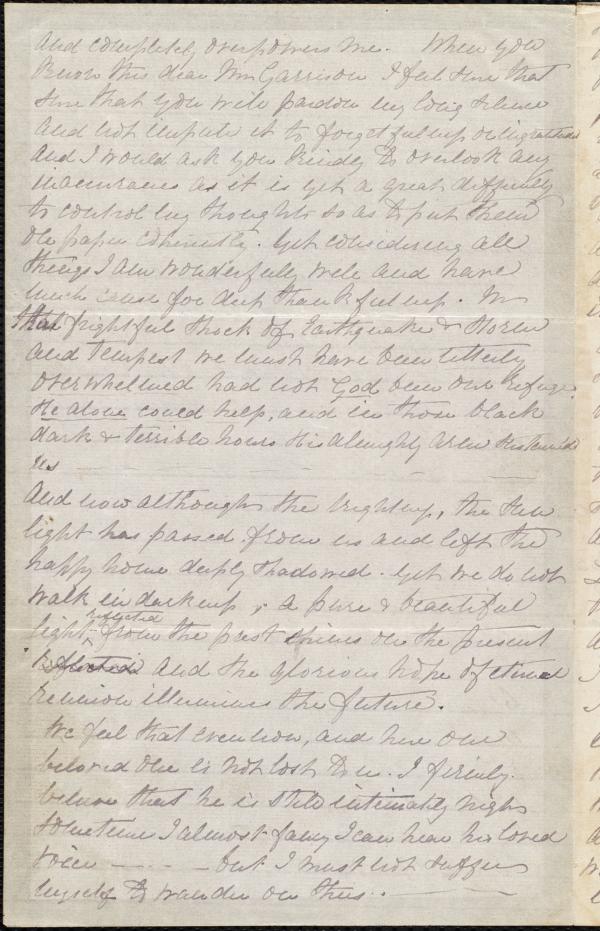 and completely overpowers me. When you
know this dear Mr Garrison I feel sure that
sure that you will pardon my long silence
and not impute it to forgetfulness or ingratitude
And I would ask you kindly to overlook any
inaccuracies as it is yet a great difficulty
to control my thoughts so as to put them
on paper coherently. Yet considering all
things I am wonderfully well and have
much cause for deep thankfulness. In
that frightful shock of Earthquake & Storm
and Tempest we must have been utterly
overwhelmed had not God been our refuge.
He alone could help, and in those black
dark & terrible hours His almighty arm sustained
us
And now although the brightness, the sun
light has passed from us and left the
happy home deeply shadowed. Yet we do not
walk in darkness, a pure & beautiful
reflected
light from the past shines on the present
and the glorious hope of eternal
reunion illumines the future.
We feel that even now, and here our
beloved one is not lost to us. I firmly
believe that he is still intimately nigh
Sometimes I almost fancy I can hear his loved
voice — — — but I must not suffer
myself to wander on thus.